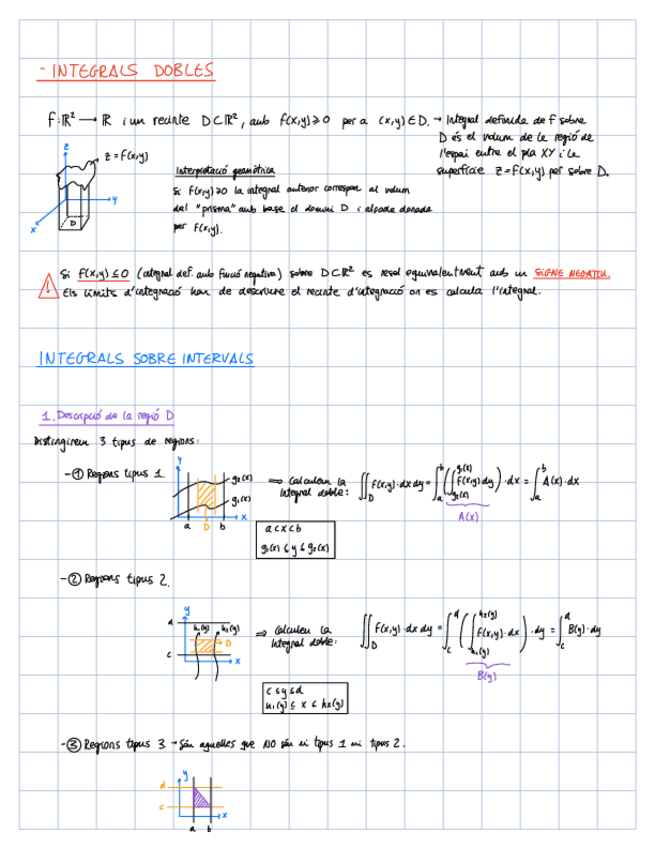 - INTEGRALS DOBLES
f: ℝ² → ℝ i un recinte D⊂ℝ², amb f(x,y) ≥ 0 per a (x,y) ∈ D. → Integral definida de f sobre
D és el volum de la regió de
l'espai entre el pla XY i la
superfície z = f(x,y) per sobre D.
z
z = f(x,y)
y
x
D
Interpretació geomètrica
Si f(x,y) ≥ 0 la integral anterior correspon al volum
del "prisma" amb base el domini D i alçada donada
per f(x,y).
Si f(x,y) ≤ 0 (integral def. amb funció negativa) sobre D⊂ℝ² es resol equivalentment amb un SIGNE NEGATIU.
! Els límits d'integració han de descriure el recinte d'integració on es calcula l'integral.
INTEGRALS SOBRE INTERVALS
1. Descripció de la regió D
Distingirem 3 tipus de regions:
- ① Regions tipus 1.
y
g₂(x)
g₁(x)
x
a D b
⇒ Calculem la
integral doble:
∬_D f(x,y)·dx dy = ∫_a^b (∫_{g₂(x)}^{g₁(x)} f(x,y) dy)·dx = ∫_a^b A(x)·dx
A(x)
a < x < b
g₁(x) ≤ y ≤ g₂(x)
- ② Regions tipus 2.
y
d
h₁(y) h₂(y)
D
c
x
⇒ Calculem la
integral doble:
∬_D f(x,y)·dx dy = ∫_c^d (∫_{h₁(y)}^{h₂(y)} f(x,y)·dx)·dy = ∫_c^d B(y)·dy
B(y)
c ≤ y ≤ d
h₁(y) ≤ x ≤ h₂(y)
- ③ Regions tipus 3 → Són aquelles que NO són ni tipus 1 ni tipus 2.
y
d
c
x
a b